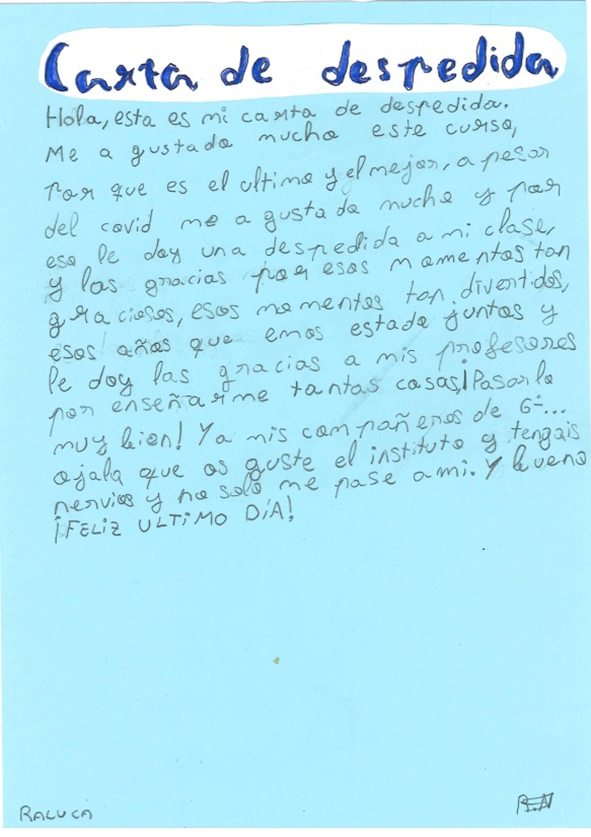 Carta de despedida
Hola, esta es mi carta de despedida.
Me a gustado mucho este curso,
Por que es el ultimo y el mejor, a pesar
del covid me a gustado mucho y por
eso le doy una despedida a mi clase,
y las gracias por esos momentos tan
graciosos, esos momentos tan divertidos,
esos años que emos estado juntos y
le doy las gracias a mis profesores
por enseñarme tantas cosas ¡Pasarlo
muy bien! Y a mis compañeros de 6º...
ojala que os guste el instituto y tengais
nervios y no solo me pase a mi. Y bueno
¡FELIZ ULTIMO DÍA!
RALUCA